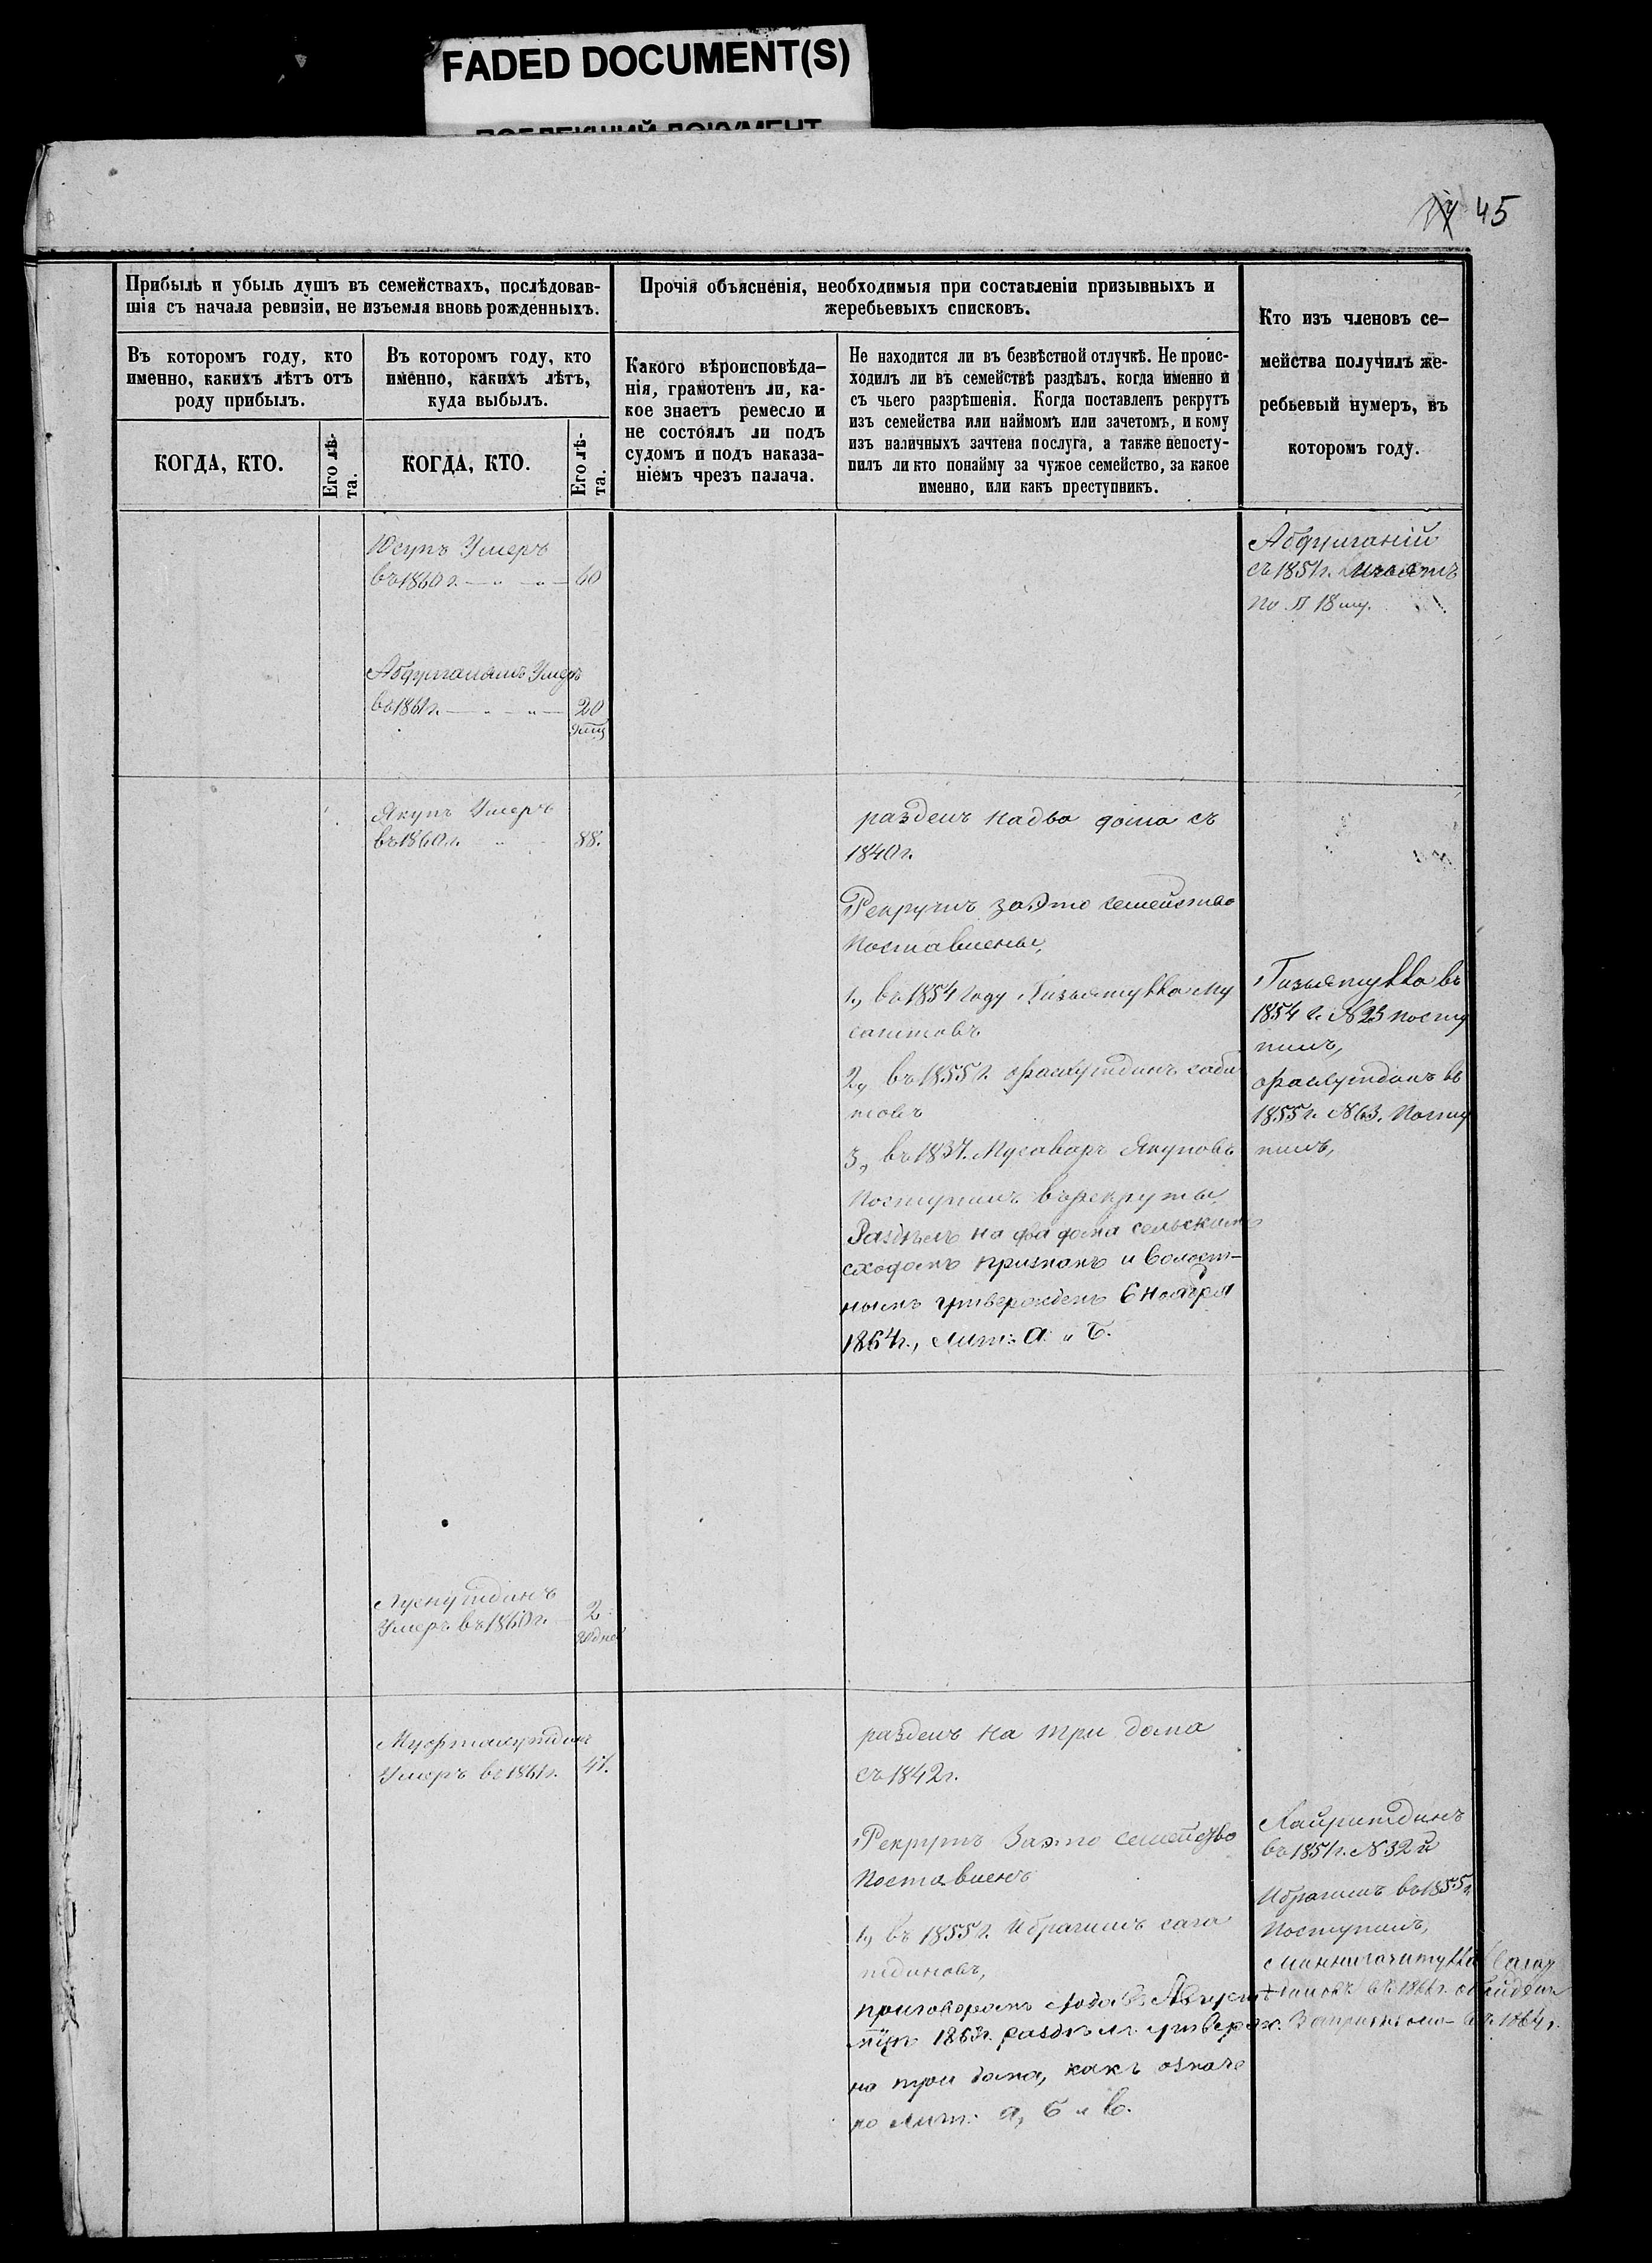 FADED DOCUMENT(S)
45
Прибыль и убыль душъ въ семействахъ, послѣдовав-
шія съ начала ревизіи, не изъемля вновь рожденныхъ.
Прочія объясненія, необходимыя при составленіи призывныхъ и
жеребьевыхъ списковъ.
Кто изъ членовъ се-
мейства получилъ же-
ребьевый нумеръ, въ
которомъ году.
Въ которомъ году, кто
именно, какихъ лѣтъ отъ
роду прибылъ.
Въ которомъ году, кто
именно, какихъ лѣтъ,
куда выбылъ.
Какого вѣроисповѣда-
нія, грамотенъ ли, ка-
кое знаетъ ремесло и
не состоялъ ли подъ
судомъ и подъ наказа-
ніемъ чрезъ палача.
Не находится ли въ безвѣстной отлучкѣ. Не проис-
ходилъ ли въ семействѣ раздѣлъ, когда именно и
съ чьего разрѣшенія. Когда поставленъ рекрутъ
изъ семейства или наймомъ или зачетомъ, и кому
изъ наличныхъ зачтена послуга, а также непосту-
пилъ ли кто понайму за чужое семейство, за какое
именно, или какъ преступникъ.
КОГДА, КТО.
Его лѣ-
та.
КОГДА, КТО.
Его лѣ-
та.
Юсупъ Умеръ
въ 1860 г. — " — " — 60
съ 1851 г.
по 18
Умеръ
въ 1861 г. — " — " — 20
Якупъ Умеръ
въ 1860 г. " - 88.
разделъ на два дома съ
1840 г.
Рекрутъ за это семейство
Поставлены,
1, въ 1854 Году Гизятулла Му
2, въ 1855 г. саби
товъ
3, въ 1837. Мусаваръ Якуповъ
Поступилъ въ рекруты
Раздѣлъ на два дома сельскимъ
сходомъ признанъ и Волост-
нымъ утвержденъ 6 Ноября
1864 г., лит: а и б.
Гизятулла въ
1854 г. № 23 посту
пилъ,
въ
1855 г. № 63. Посту
пилъ,
Умеръ въ 1860 г. 2
Умеръ въ 1861 г. 41.
разделъ на три дома
съ 1842 г.
Рекрутъ За это семейство
Поставленъ
1, въ 1855 г. Ибрагимъ сага
тдиновъ,
приговоромъ
1863 г. раздѣлъ утвержд.
на три дома, какъ означе
но лит: а, б и в.
Хайритдинъ
въ 1851 г. № 32 й
Ибрагимъ въ 1855 г.
Поступилъ,